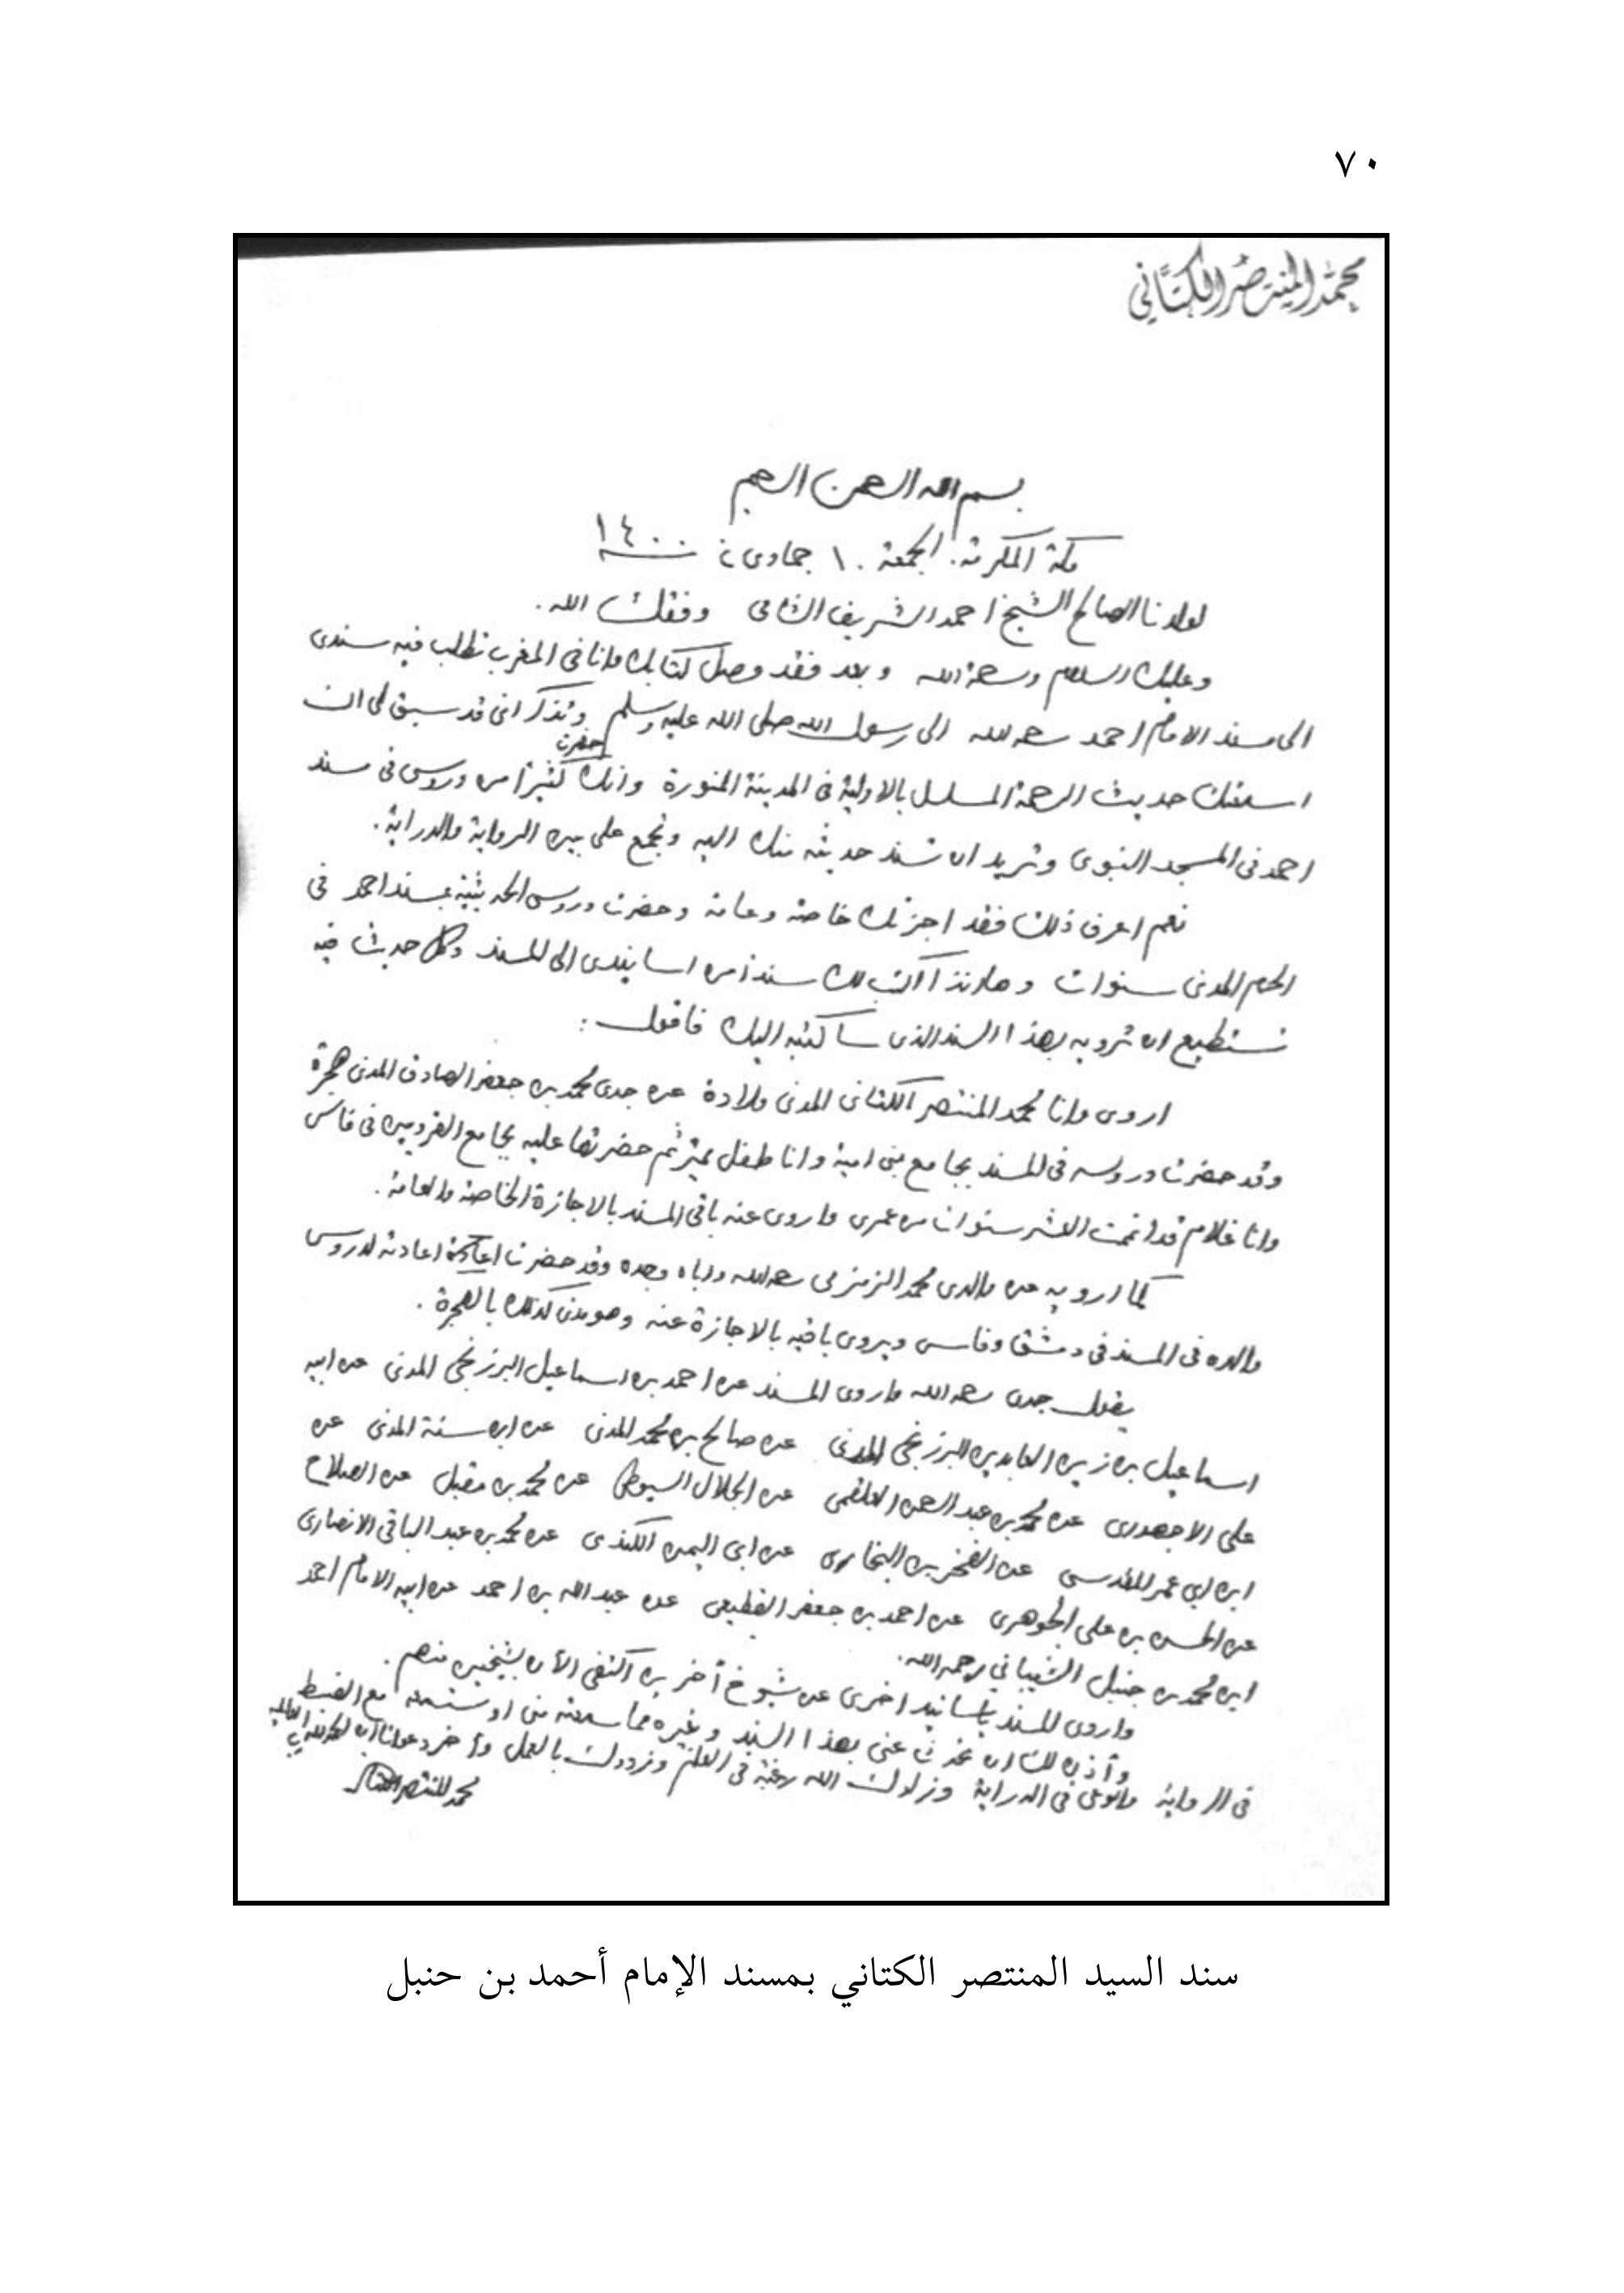 ٧٠
محمد المنتصر الكتاني
بسم الله الرحمن الرحيم
مكة المكرمة. الجمعة ١٠ جمادى ١٤٠٠
لولدنا الصالح الشيخ احمد الشريف وفقك الله.
وعليك السلام ورحمة الله وبعد فقد وصل كتابك وانا في المغرب تطلب فيه سندى
الى مسند الامام احمد رحمه الله الى رسول الله صلى الله عليه وسلم وتذكر انى قد سبق لى ان
اسمعتك حديث الرحمة المسلسل بالاولية في المدينة المنورة وانك حضرت كثيراً من دروسى في مسند
احمد في المسجد النبوى وتريد ان تسند حديثه منك اليه وتجمع على بين الرواية والدراية.
نعم اعرف ذلك فقد اجزتك خاصة وعامة وحضرت دروسى الحديثية بمسند احمد في
الحرم المدنى سنوات وها انذا أكتب لك سنداً من اسانيدى الى المسند وكل حديث فيه
تستطيع ان ترويه بهذا السند الذى سأكتبه اليك فاقول :
اروى وانا محمد المنتصر الكتانى المدنى ولادة عن جدى محمد بن جعفر الصادق المدنى هجرة
وقد حضرت دروسه في المسند بجامع بنى امية وانا طفل مميز ثم حضرتها عليه بجامع القرويين في فاس
وانا غلام قد اتممت العشر سنوات من عمرى واروى عنه باقى المسند بالاجازة الخاصة والعامة.
كما ارويه عن والدى محمد الزمزمى رحمه الله واياه وجده وقد حضرت اعادته لدروس
والده في المسند في دمشق وفاس ويروى باقيه بالاجازة عنه وهو مدنى كذلك بالهجرة.
يقول جدى رحمه الله واروى المسند عن احمد بن اسماعيل البرزنجى المدنى عن ابيه
اسماعيل بن زين العابدين البرزنجى المدنى عن صالح بن محمد المدنى عن ابن سنة المدنى عن
على الاجهورى عن محمد بن عبد الرحمن العلقمى عن الجلال السيوطى عن محمد بن مقبل عن الصلاح
ابن ابى عمر المقدسى عن الفخر بن البخارى عن ابى اليمن الكندى عن محمد بن عبد الباقى الانصارى
عن الحسن بن على الجوهرى عن احمد بن جعفر القطيعى عن عبد الله بن احمد عن ابيه الامام احمد
ابن محمد بن حنبل الشيبانى رحمه الله.
واروى المسند بأسانيد اخرى عن شيوخ أخرين اكتفى الأن بشيخين منهم.
وأذن لك ان تحدث عنى بهذا السند وغيره مما سمعته منى او ستسمعه مع الضبط
في الرواية والوعى في الدراية وزادك الله رغبة في العلم وزودك بالعمل وأخر دعوانا ان الحمد لله رب العالمين
محمد المنتصر الكتانى
سند السيد المنتصر الكتاني بمسند الإمام أحمد بن حنبل